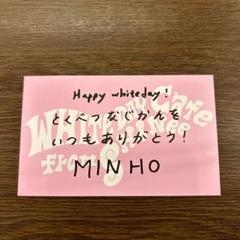 Happy whiteday!
とくべつなじかんを
いつもありがとう!
MINHO
WHITEDAY Cafe
from SHINee